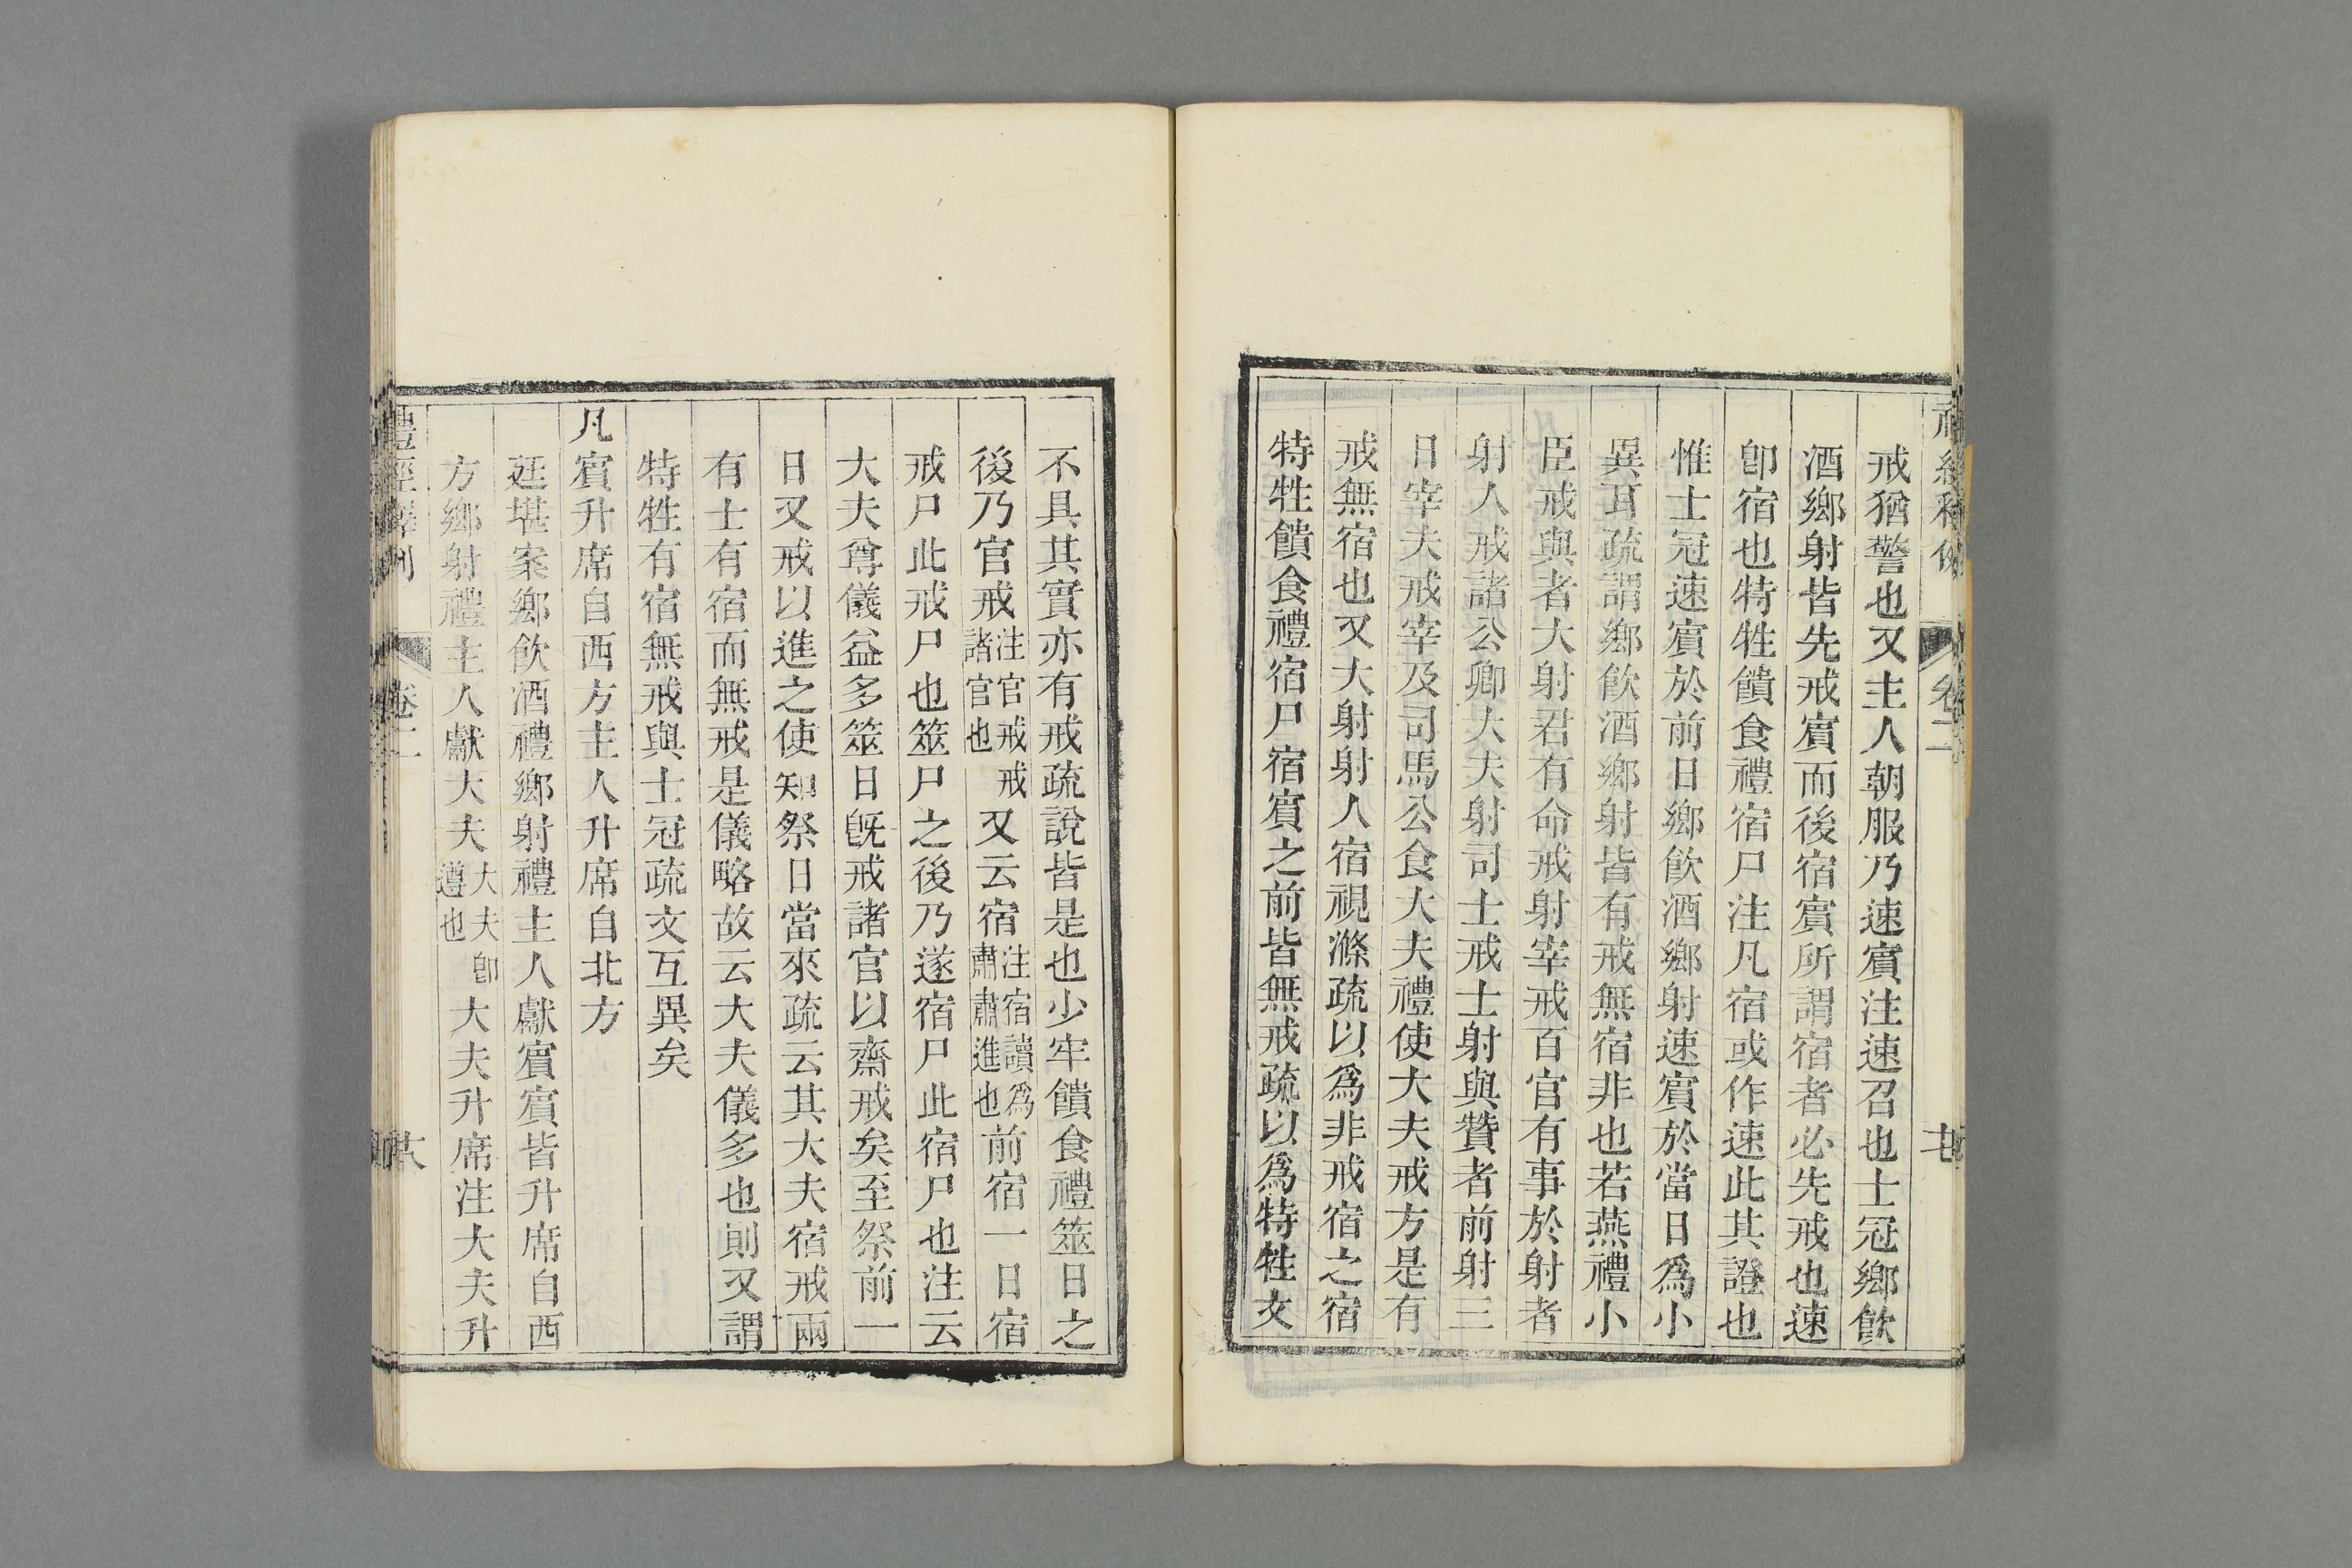 戒猶警也又主人朝服乃速賓注速召也士冠鄉飲
酒鄉射皆先戒賓而後宿賓所謂宿者必先戒也速
卽宿也特牲饋食禮宿尸注凡宿或作速此其證也
惟士冠速賓於前日鄉飲酒鄉射速賓於當日爲小
異耳疏謂鄉飲酒鄉射皆有戒無宿非也若燕禮小
臣戒與者大射君有命戒射宰戒百官有事於射者
射人戒諸公卿大夫射司士戒士射與贊者前射三
日宰夫戒宰及司馬公食大夫禮使大夫戒方是有
戒無宿也又大射射人宿視滌疏以爲非戒宿之宿
特牲饋食禮宿尸宿賓之前皆無戒疏以爲特牲文
不具其實亦有戒疏說皆是也少牢饋食禮筮日之
後乃官戒注官戒戒諸官也又云宿注宿讀爲肅肅進也前宿一日宿
戒尸此戒尸也筮尸之後乃遂宿尸此宿尸也注云
大夫尊儀益多筮日旣戒諸官以齋戒矣至祭前一
日又戒以進之使知祭日當來疏云其大夫宿戒兩
有士有宿而無戒是儀略故云大夫儀多也則又謂
特牲有宿無戒與士冠疏文互異矣
凡賓升席自西方主人升席自北方
廷堪案鄉飲酒禮鄉射禮主人獻賓賓皆升席自西
方鄉射禮主人獻大夫大夫卽遵也大夫升席注大夫升
禮經釋例
卷二